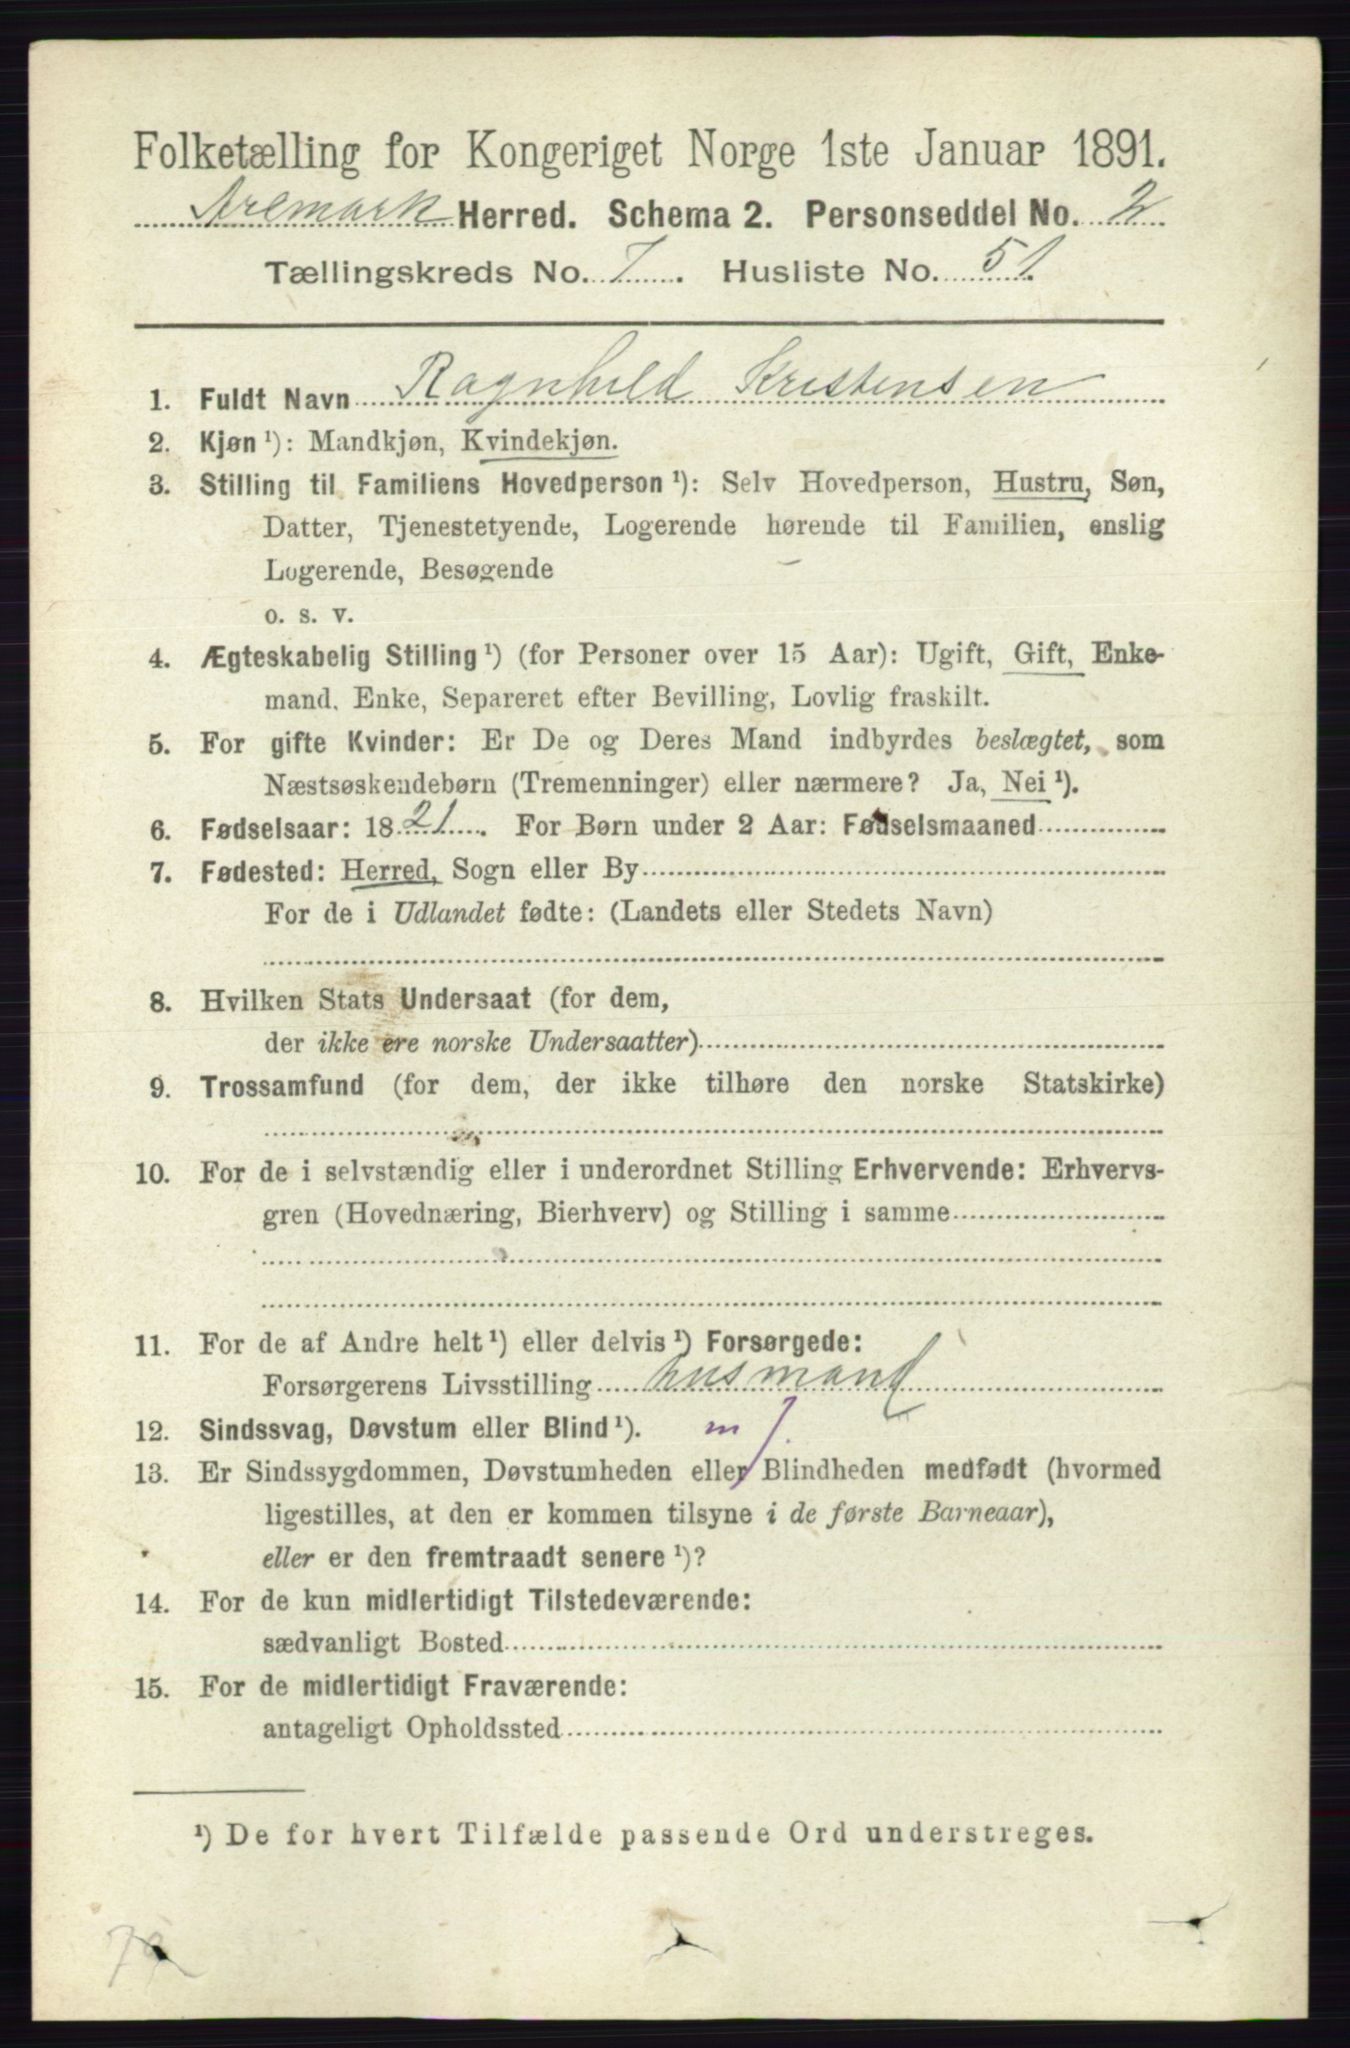 Folketælling for Kongeriget Norge 1ste Januar 1891.
Aremark Herred. Schema 2. Personseddel No. 2
Tællingskreds No. 7. Husliste No. 51.
1. Fuldt Navn Ragnhild Kristensen
2. Kjøn ¹): Mandkjøn, Kvindekjøn.
3. Stilling til Familiens Hovedperson ¹): Selv Hovedperson, Hustru, Søn,
Datter, Tjenestetyende, Logerende hørende til Familien, enslig
Logerende, Besøgende
o. s. v.
4. Ægteskabelig Stilling ¹) (for Personer over 15 Aar): Ugift, Gift, Enke-
mand, Enke, Separeret efter Bevilling, Lovlig fraskilt.
5. For gifte Kvinder: Er De og Deres Mand indbyrdes beslægtet, som
Næstsøskendebørn (Tremenninger) eller nærmere? Ja, Nei ¹).
6. Fødselsaar: 1821. For Børn under 2 Aar: Fødselsmaaned
7. Fødested: Herred, Sogn eller By
For de i Udlandet fødte: (Landets eller Stedets Navn)
8. Hvilken Stats Undersaat (for dem,
der ikke ere norske Undersaatter)
9. Trossamfund (for dem, der ikke tilhøre den norske Statskirke)
10. For de i selvstændig eller i underordnet Stilling Erhvervende: Erhvervs-
gren (Hovednæring, Bierhverv) og Stilling i samme
11. For de af Andre helt ¹) eller delvis ¹) Forsørgede:
Forsørgerens Livsstilling husmand
12. Sindssvag, Døvstum eller Blind ¹).
13. Er Sindssygdommen, Døvstumheden eller Blindheden medfødt (hvormed
ligestilles, at den er kommen tilsyne i de første Barneaar),
eller er den fremtraadt senere ¹)?
14. For de kun midlertidigt Tilstedeværende:
sædvanligt Bosted
15. For de midlertidigt Fraværende:
antageligt Opholdssted
¹) De for hvert Tilfælde passende Ord understreges.